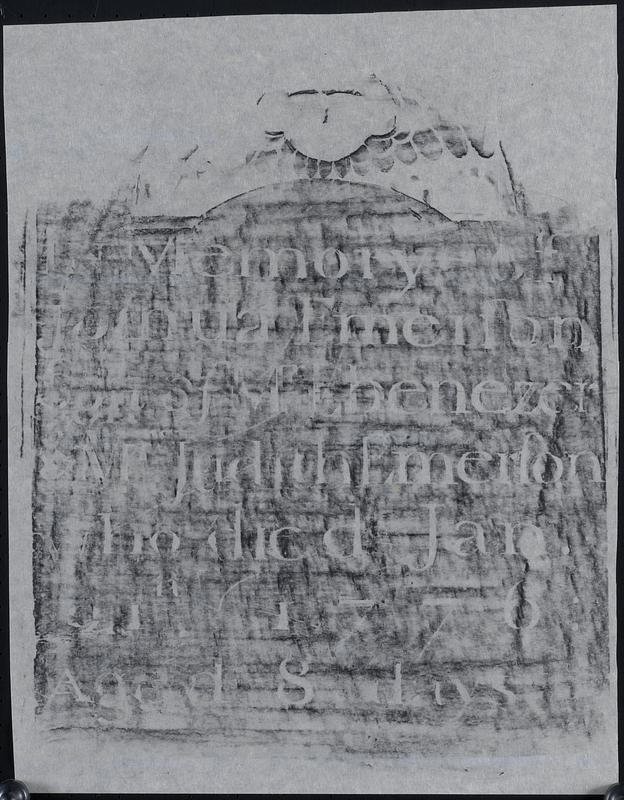 In Memory of
Joshua Emerſon
Son of Mr Ebenezer
& Mrs Judith Emerſon
who died Jan.
1776
Aged 8 days